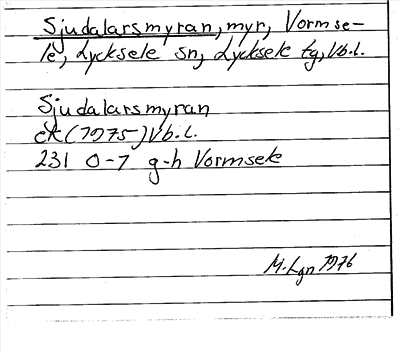 Sjudalarsmyran, myr, Vormse-
le, Lycksele sn, Lycksele tg, Vb.l.
Sjudalarsmyran
ek (1975) Vb.l.
231 0-7 g-h Vormsele
M. Lgn 1976